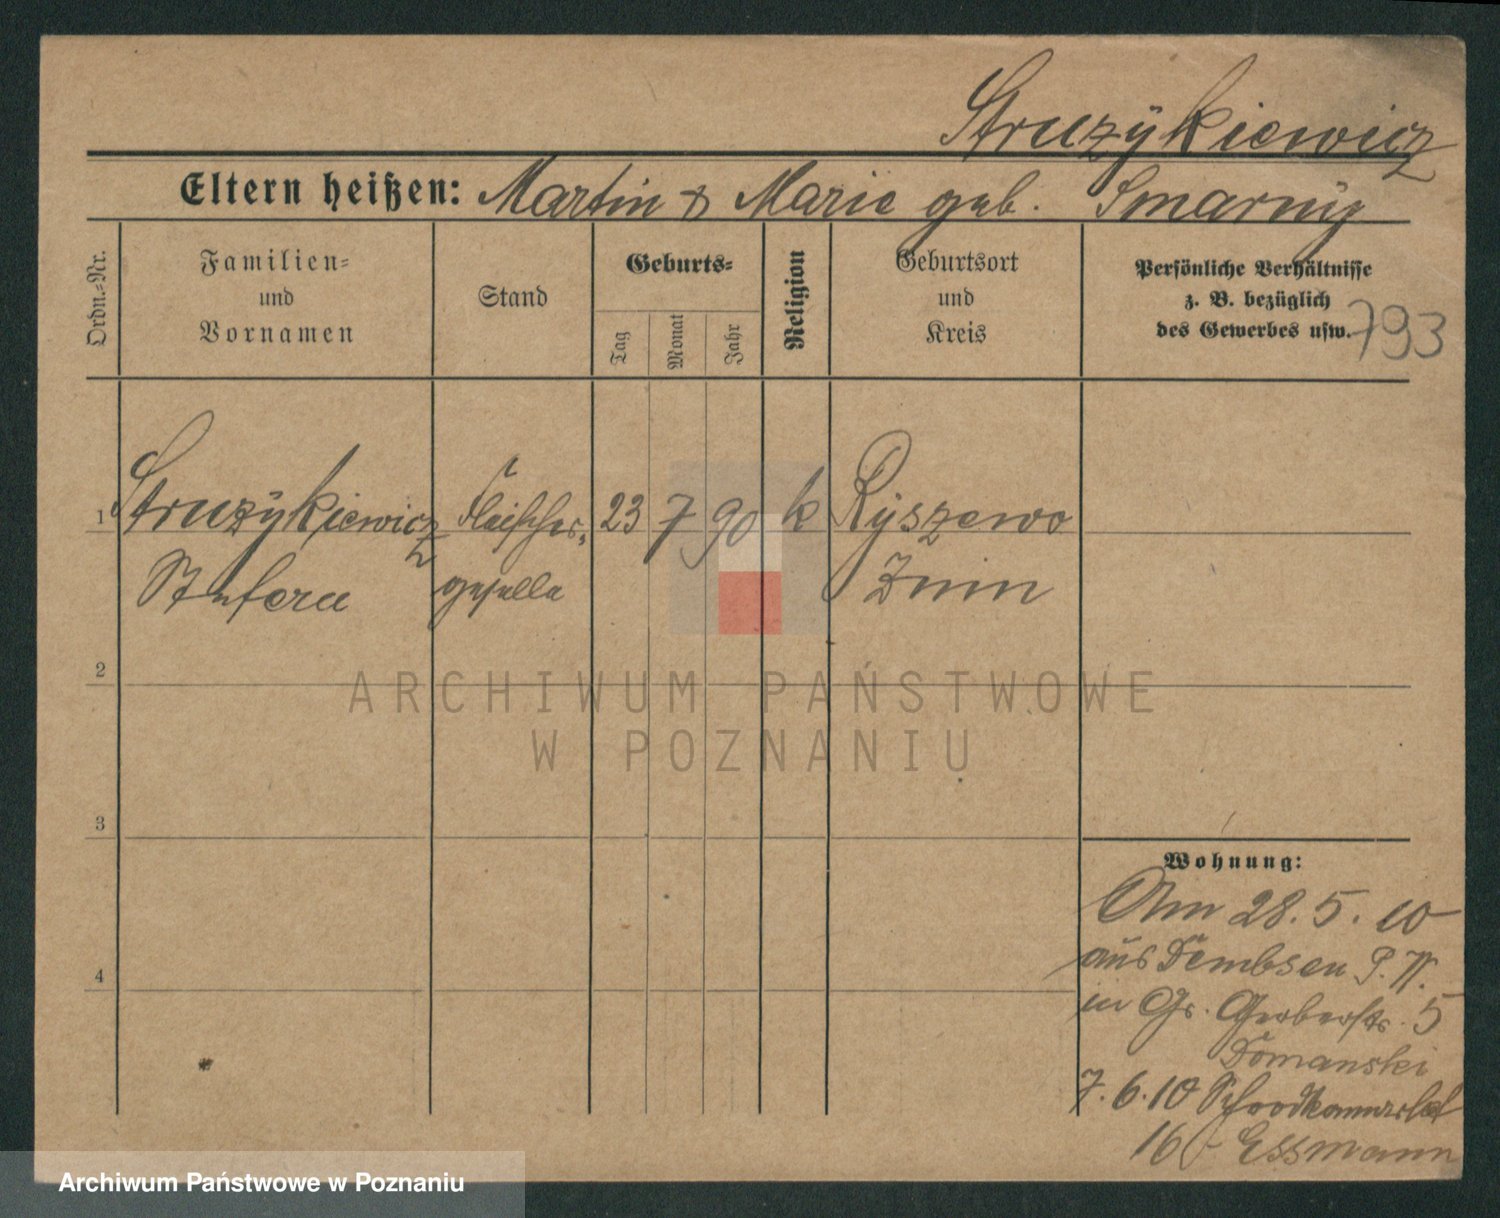 Struzÿkiewicz
Eltern heißen: Martin & Marie geb. Smarnÿ
Ordn.-Nr.
Familien-
und
Vornamen
Stand
Geburts-
Tag
Monat
Jahr
Religion
Geburtsort
und
Kreis
Persönliche Verhältnisse
z. B. bezüglich
des Gewerbes usw.
793
1 Struzÿkiewicz Fleischer- 23 7 90 k Rÿszewo
Stefan geselle Znin
2
ARCHIWUM PAŃSTWOWE
W POZNANIU
3
Wohnung:
Am 28. 5. 10
aus Dembsen P. W.
4
in Gr. Gerberstr. 5
Domanski
7. 6. 10
16 Essmann
Archiwum Państwowe w Poznaniu